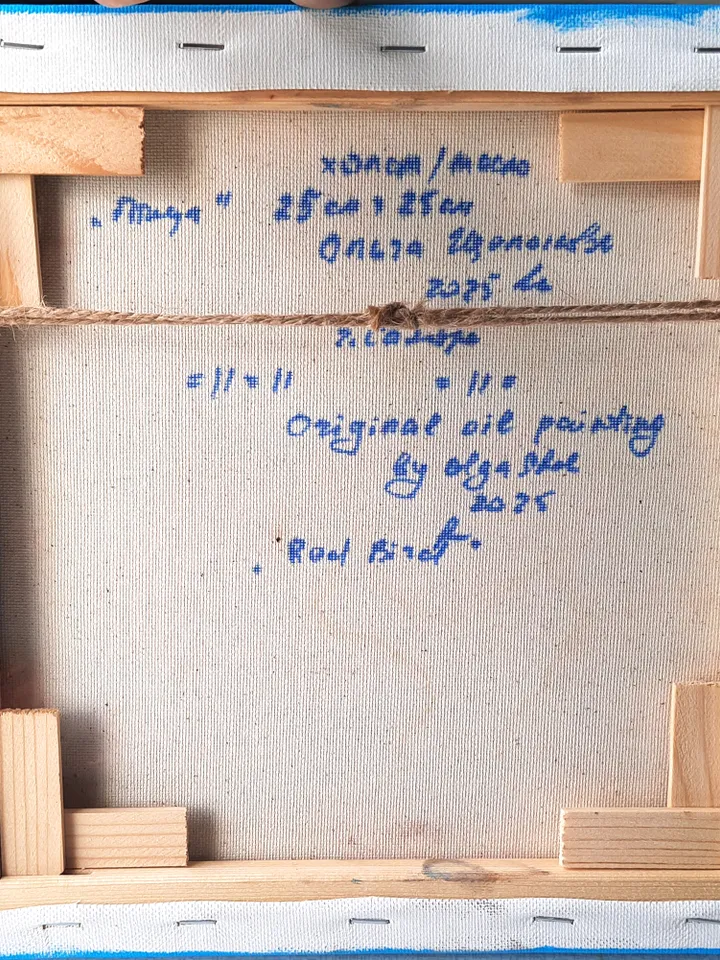 холст/масло
„Птица“ 25см х 25см
Ольга
2025
г. Самара
=||=|| =||=
Original oil painting
by Olga Shol
2025
"Red Bird"